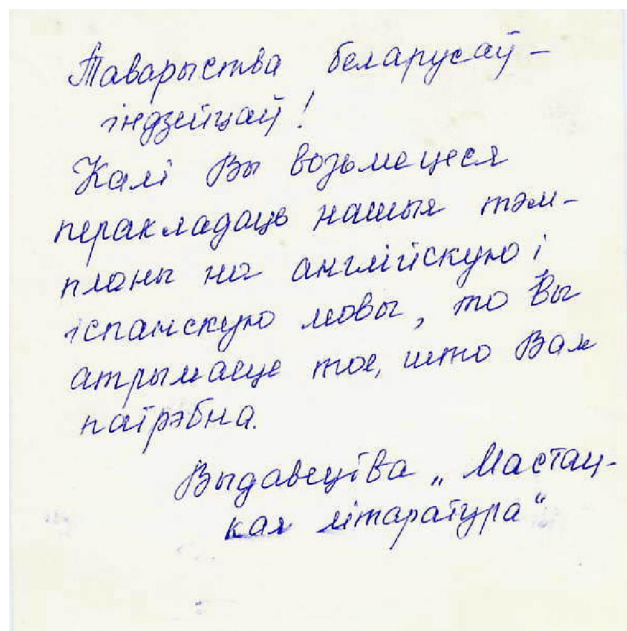 Таварыства беларусаў-
індзейцаў!
Калі Вы возьмецеся
перакладаць нашыя тэм-
планы на англійскую і
іспанскую мовы, то Вы
атрымаеце тое, што Вам
патрэбна.
Выдавецтва „Мастац-
кая літаратура“